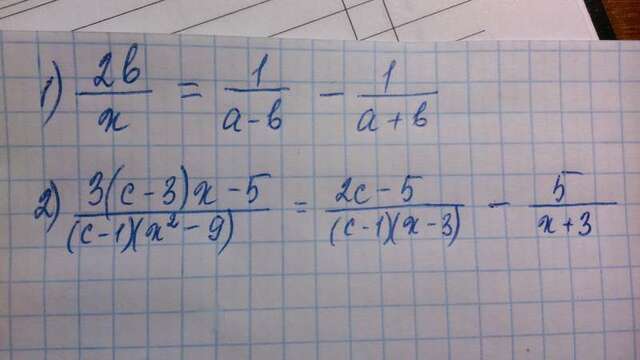 1) 2b/x = 1/(a-b) - 1/(a+b)
2) (3(c-3)x-5)/((c-1)(x²-9)) = (2c-5)/((c-1)(x-3)) - 5/(x+3)